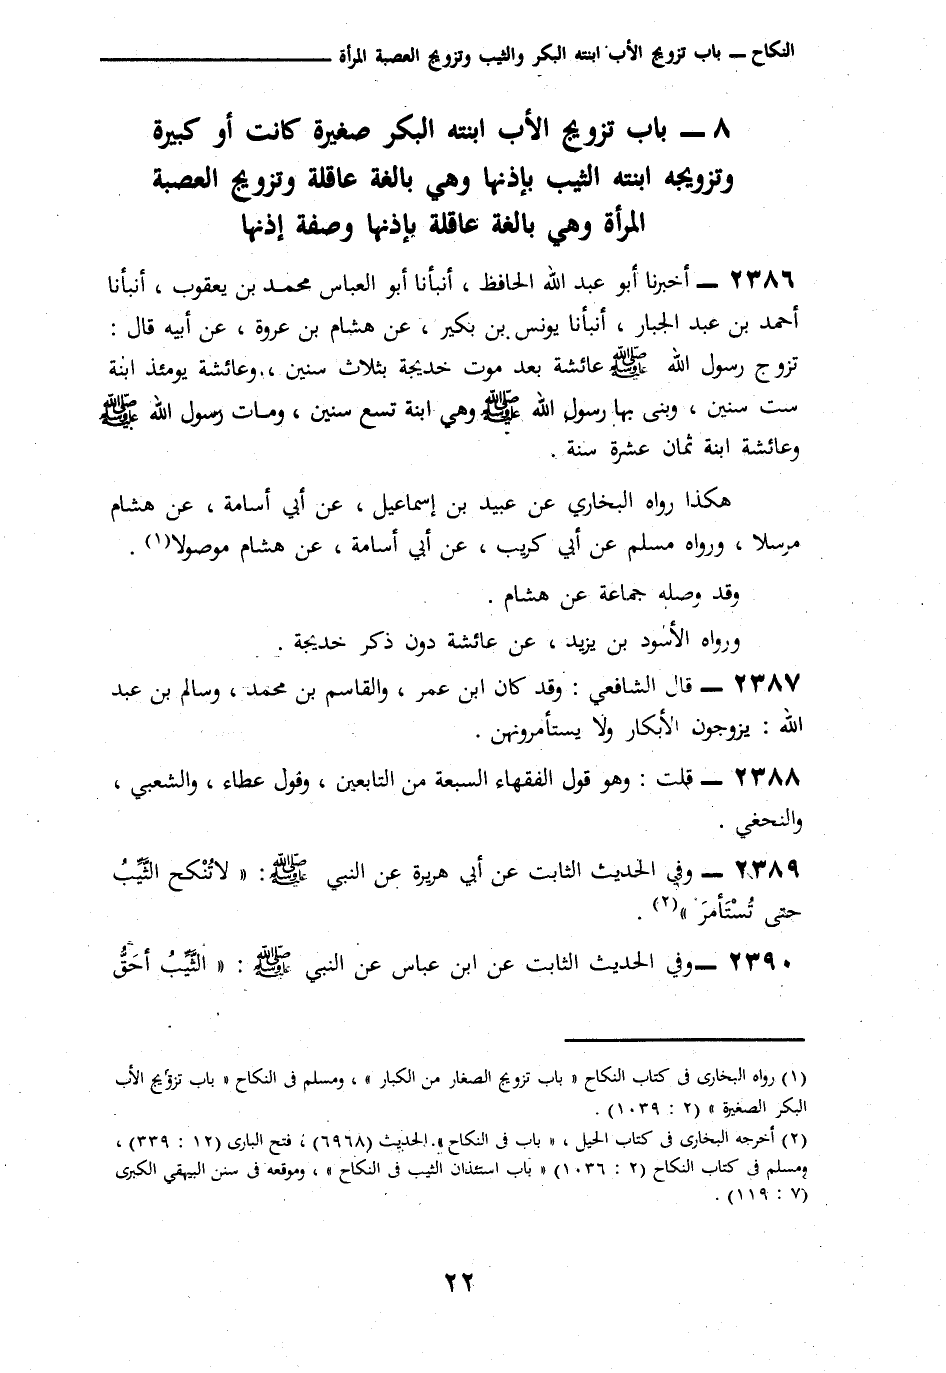 النكاح ـــ باب تزويج الأب ابنته البكر والثيب وتزويج العصبة المرأة
٨ ـــ باب تزويج الأب ابنته البكر صغيرة كانت أو كبيرة
وتزويجه ابنته الثيب بإذنها وهي بالغة عاقلة وتزويج العصبة
المرأة وهي بالغة عاقلة بإذنها وصفة إذنها
٢٣٨٦ ـــ أخبرنا أبو عبد الله الحافظ ، أنبأنا أبو العباس محمد بن يعقوب ، أنبأنا
أحمد بن عبد الجبار ، أنبأنا يونس بن بكير ، عن هشام بن عروة ، عن أبيه قال :
تزوج رسول الله ﷺ عائشة بعد موت خديجة بثلاث سنين ، وعائشة يومئذ ابنة
ست سنين ، وبنى بها رسول الله ﷺ وهي ابنة تسع سنين ، ومات رسول الله ﷺ
وعائشة ابنة ثمان عشرة سنة .
هكذا رواه البخاري عن عبيد بن إسماعيل ، عن أبي أسامة ، عن هشام
مرسلا ، ورواه مسلم عن أبي كريب ، عن أبي أسامة ، عن هشام موصولا(١) .
وقد وصله جماعة عن هشام .
ورواه الأسود بن يزيد ، عن عائشة دون ذكر خديجة .
٢٣٨٧ ـــ قال الشافعي : وقد كان ابن عمر ، والقاسم بن محمد ، وسالم بن عبد
الله : يزوجون الأبكار ولا يستأمرونهن .
٢٣٨٨ ـــ قلت : وهو قول الفقهاء السبعة من التابعين ، وقول عطاء ، والشعبي ،
والنخعي .
٢٣٨٩ ـــ وفي الحديث الثابت عن أبي هريرة عن النبي ﷺ : « لاتُنْكح الثَّيِّبُ
حتى تُسْتَأمرَ »(٢) .
٢٣٩٠ ـــ وفي الحديث الثابت عن ابن عباس عن النبي ﷺ : « الثَّيِّبُ أحَقُّ
(١) رواه البخارى فى كتاب النكاح « باب تزويج الصغار من الكبار » ، ومسلم فى النكاح « باب تزويج الأب
البكر الصغيرة » (٢ : ١٠٣٩) .
(٢) أخرجه البخارى فى كتاب الحيل ، « باب فى النكاح ». الحديث (٦٩٦٨) ، فتح البارى (١٢ : ٣٣٩) ،
ومسلم فى كتاب النكاح (٢ : ١٠٣٦) « باب استئذان الثيب فى النكاح » ، وموقعه فى سنن البيهقي الكبرى
(٧ : ١١٩) .
٢٢